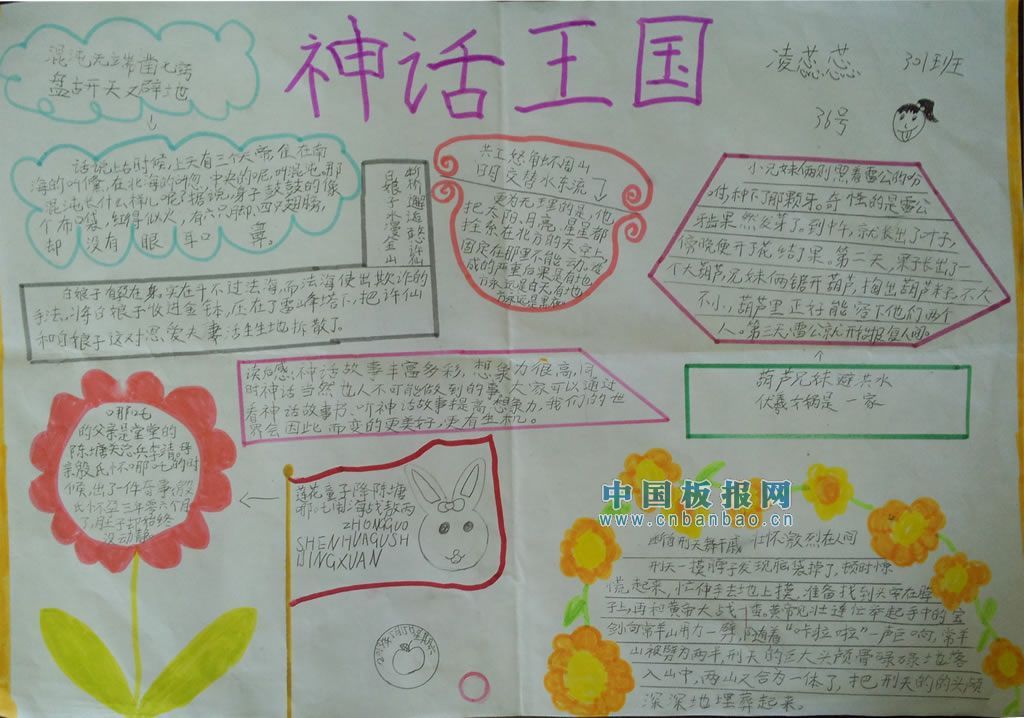 神话王国
凌蕊蕊
301班
36号
混沌无端凿七窍
盘古开天又辟地
话说上古时候,上天有三个天帝,住在南
海的叫儵,在北海的叫忽,中央的呢,叫混沌。那
混沌长什么样儿呢?据说,身子鼓鼓的像
个布口袋,红得似火,有六只脚,四只翅膀,
却没有眼耳口鼻。
断桥邂逅许仙
白娘子水漫金山
白娘子有段在身,实在斗不过法海,而法海使出欺诈的
手法,将白娘子收进金钵,压在了雷峰塔下,把许仙
和白娘子这对恩爱夫妻活生生地拆散了。
共工怒触不周山
日月交替水东流
更为无理的是,他
把太阳、月亮、星星都
拴系在北方的天空上,
固定在那里不能动,造
成的严重后果是有地
方永远是白天,有地
方永远是黑夜。
小兄妹俩别黑看雷公的吩
咐,种下那颗牙。奇怪的是雷公
牙当真果然发芽了,到中午,就长出了叶子,
傍晚便开了花,结了果。第二天,果子长出了一
个大葫芦,兄妹俩锯开葫芦,掏出葫芦籽,不大
不小,葫芦里正好能容下他们两个
人。第三天,雷公就开始报复人间。
葫芦兄妹避洪水
伏羲女娲是一家
读后感:神话故事丰富多彩,想象力很高,同
时神话当然也人不可能做到的事,大家可以通过
看神话故事书、听神话故事提高想象力,我们的世
界会因此而变的更美好,更有生机。
哪吒
的父亲是堂堂的
陈塘关总兵李靖。母
亲殷氏怀哪吒的时
候,出了一件奇事,殷
氏怀孕三年零六个月
了,肚子却始终
没动静。
莲花童子降陈塘
哪吒闹海战敖丙
ZHONGGUO
SHENHUAGUSH
IJINGXUAN
中国板报网
www.cnbanbao.cn
断首刑天舞干戚 壮怀激烈在人间
刑天一摸脖子发现脑袋掉了,顿时惊
慌起来,忙伸手去地上摸,准备找到头安在脖
子上,再和黄帝大战一番。黄帝见壮连忙举起手中的宝
剑向常羊山用力一劈,随着“咔啦啦”一声巨响,常羊
山被劈为两半,刑天的巨大头颅骨碌碌地落
入山中,两山又合为一体了,把刑天的的头颅
深深地埋葬起来。